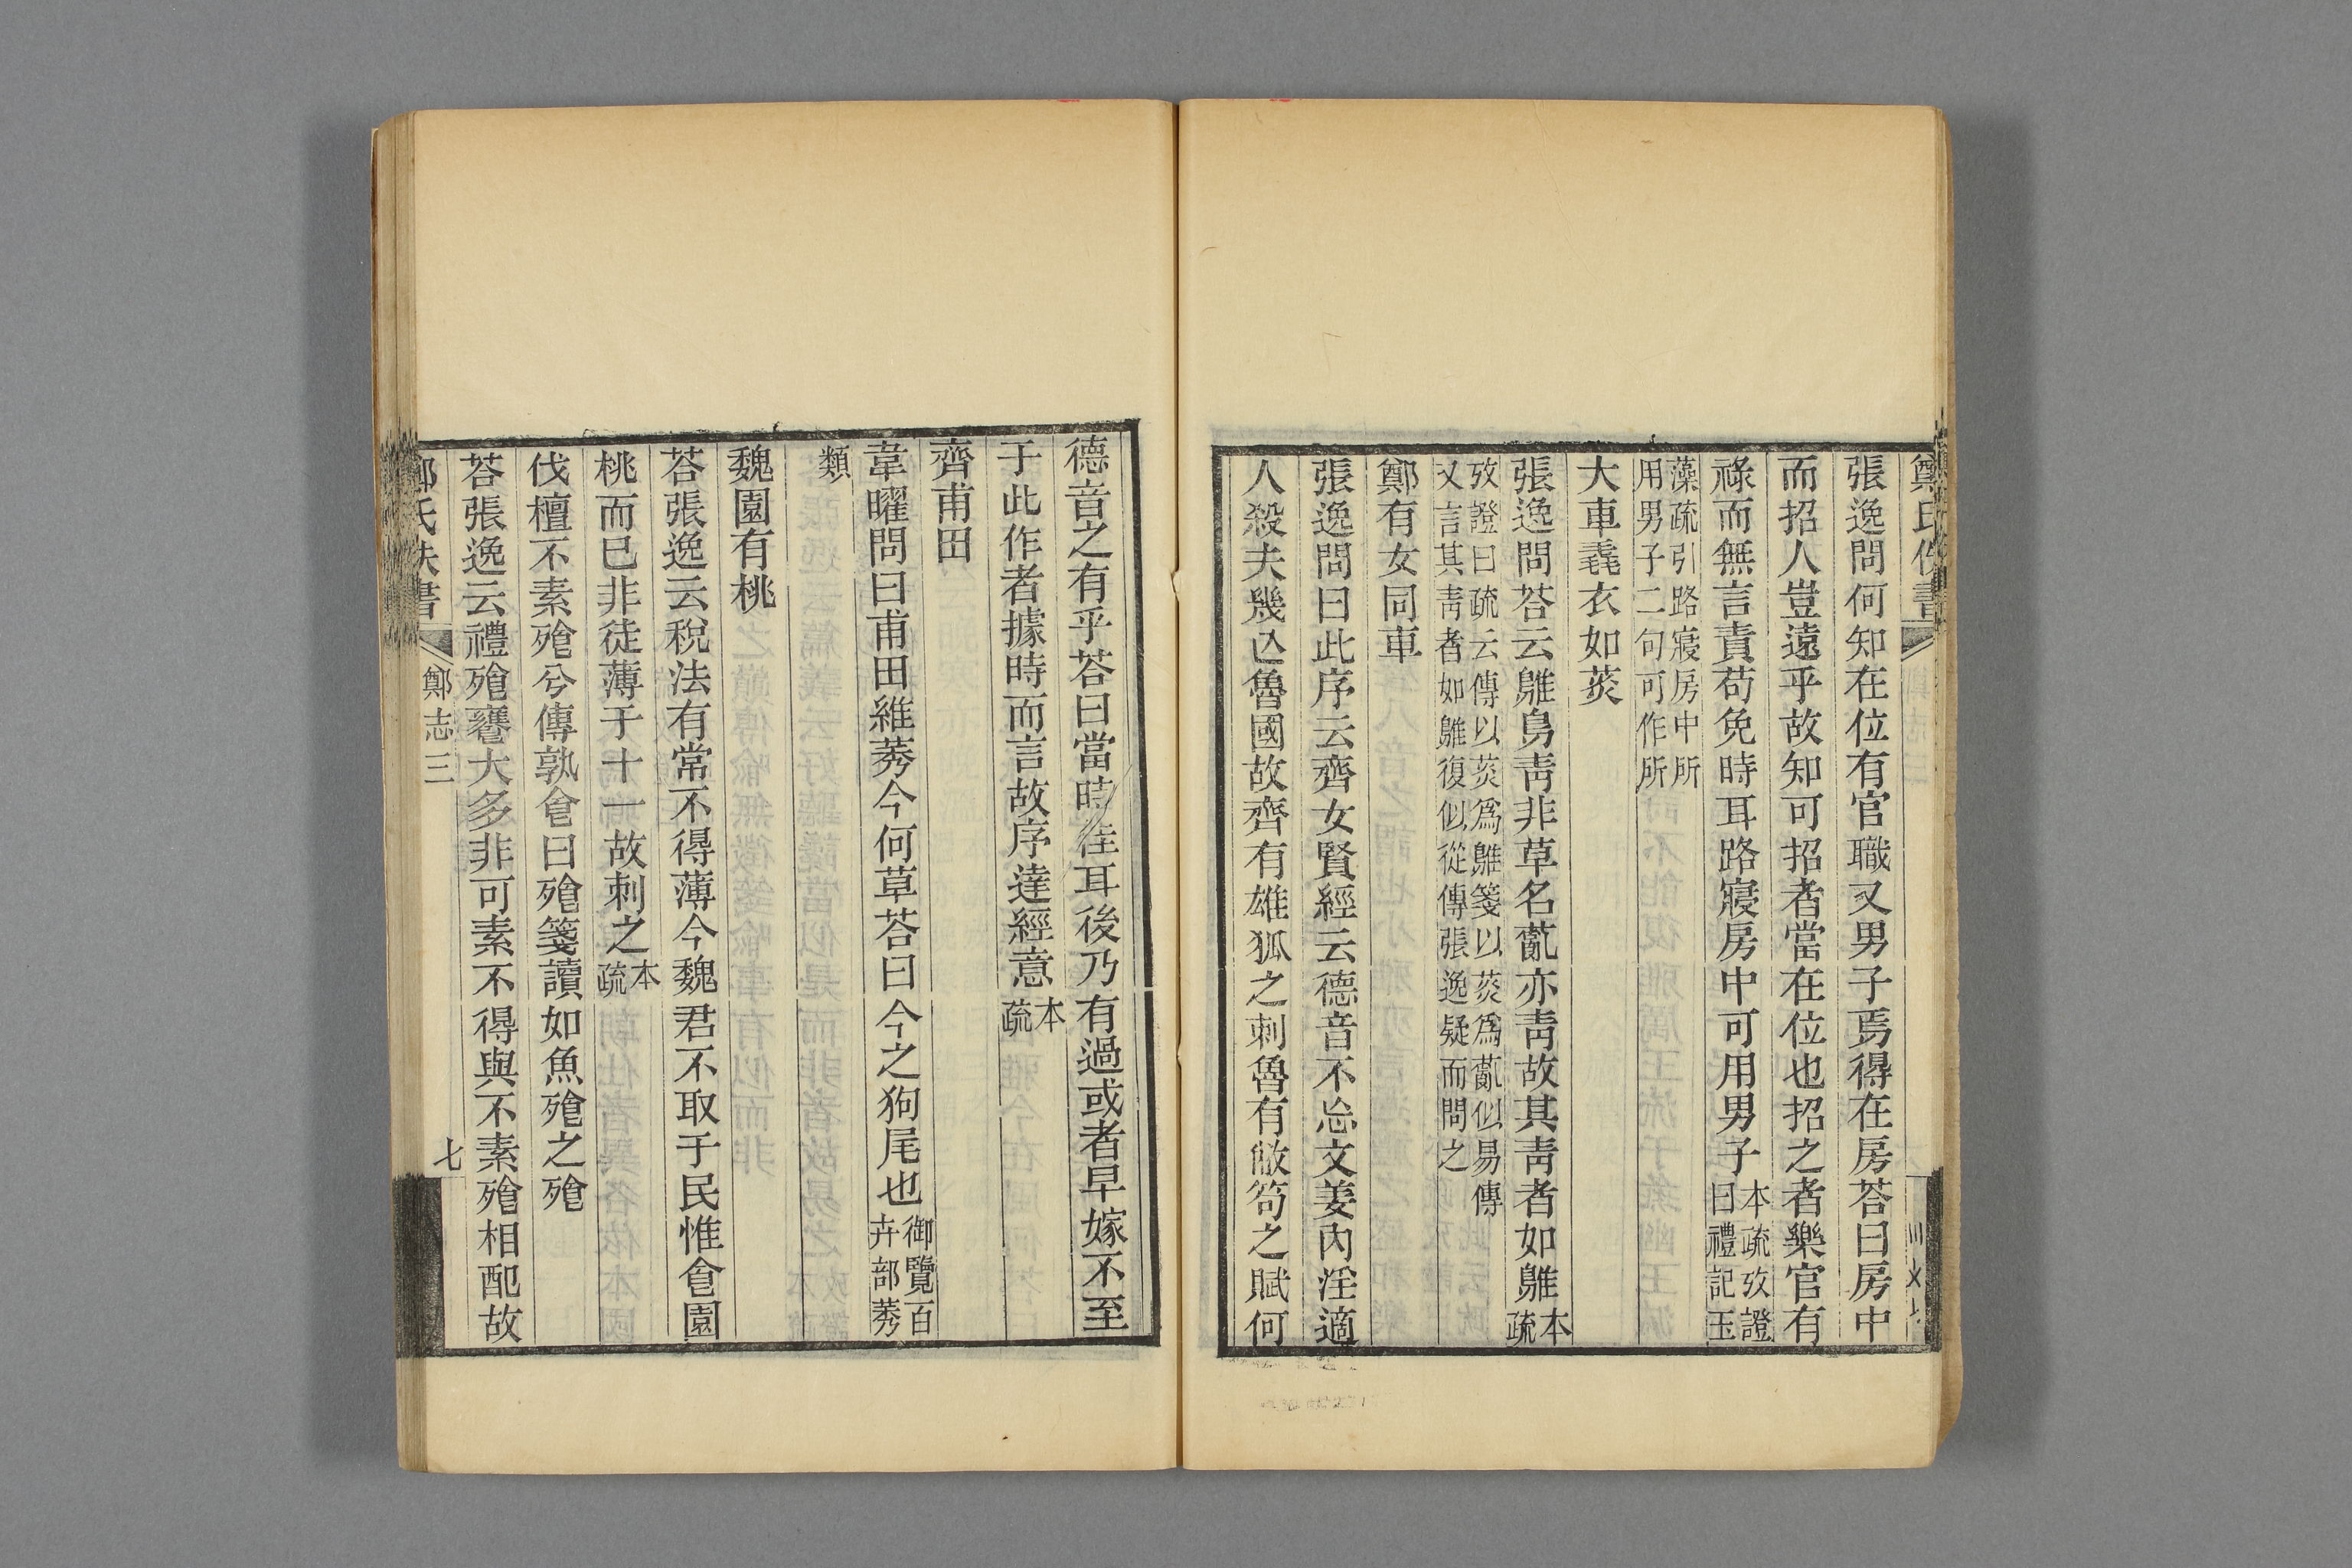 張逸問何知在位有官職又男子焉得在房荅曰房中
而招人豈遠乎故知可招者當在位也招之者樂官有
祿而無言責苟免時耳路寢房中可用男子本疏攷證曰禮記玉
藻疏引路寢房中所用男子二句可作所
大車毳衣如菼
張逸問荅云鵻鳥靑非草名薍亦靑故其靑者如鵻本疏
攷證曰疏云傳以菼爲鵻箋以菼爲薍似易傳
又言其靑者如鵻復似從傳張逸疑而問之
鄭有女同車
張逸問曰此序云齊女賢經云德音不忘文姜內淫適
人殺夫幾亾魯國故齊有雄狐之刺魯有敝笱之賦何
德音之有乎荅曰當時佳耳後乃有過或者早嫁不至
于此作者據時而言故序達經意本疏
齊甫田
韋曜問曰甫田維莠今何草荅曰今之狗尾也御覽百卉部莠
類
魏園有桃
荅張逸云稅法有常不得薄今魏君不取于民惟食園
桃而已非徒薄于十一故刺之本疏
伐檀不素飱兮傳孰食曰飱箋讀如魚飱之飱
荅張逸云禮飱饔大多非可素不得與不素飱相配故
鄭氏佚書 鄭志三 七